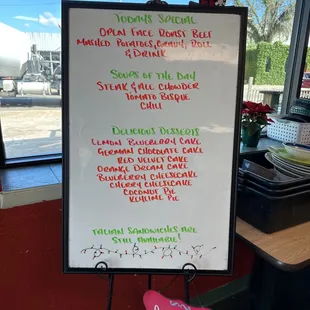 Todays Special
Open Face Roast Beef
Mashed Potatoes, Gravy, Roll
& Drink
Soups of the Day
Steak & Ale Chowder
Tomato Bisque
Chili
Delicious Desserts
Lemon Blueberry Cake
German Chocolate Cake
Red Velvet Cake
Orange Dream Cake
Blueberry Cheesecake
Cherry Cheesecake
Coconut Pie
Keylime Pie
Italian Sandwiches are
still available!